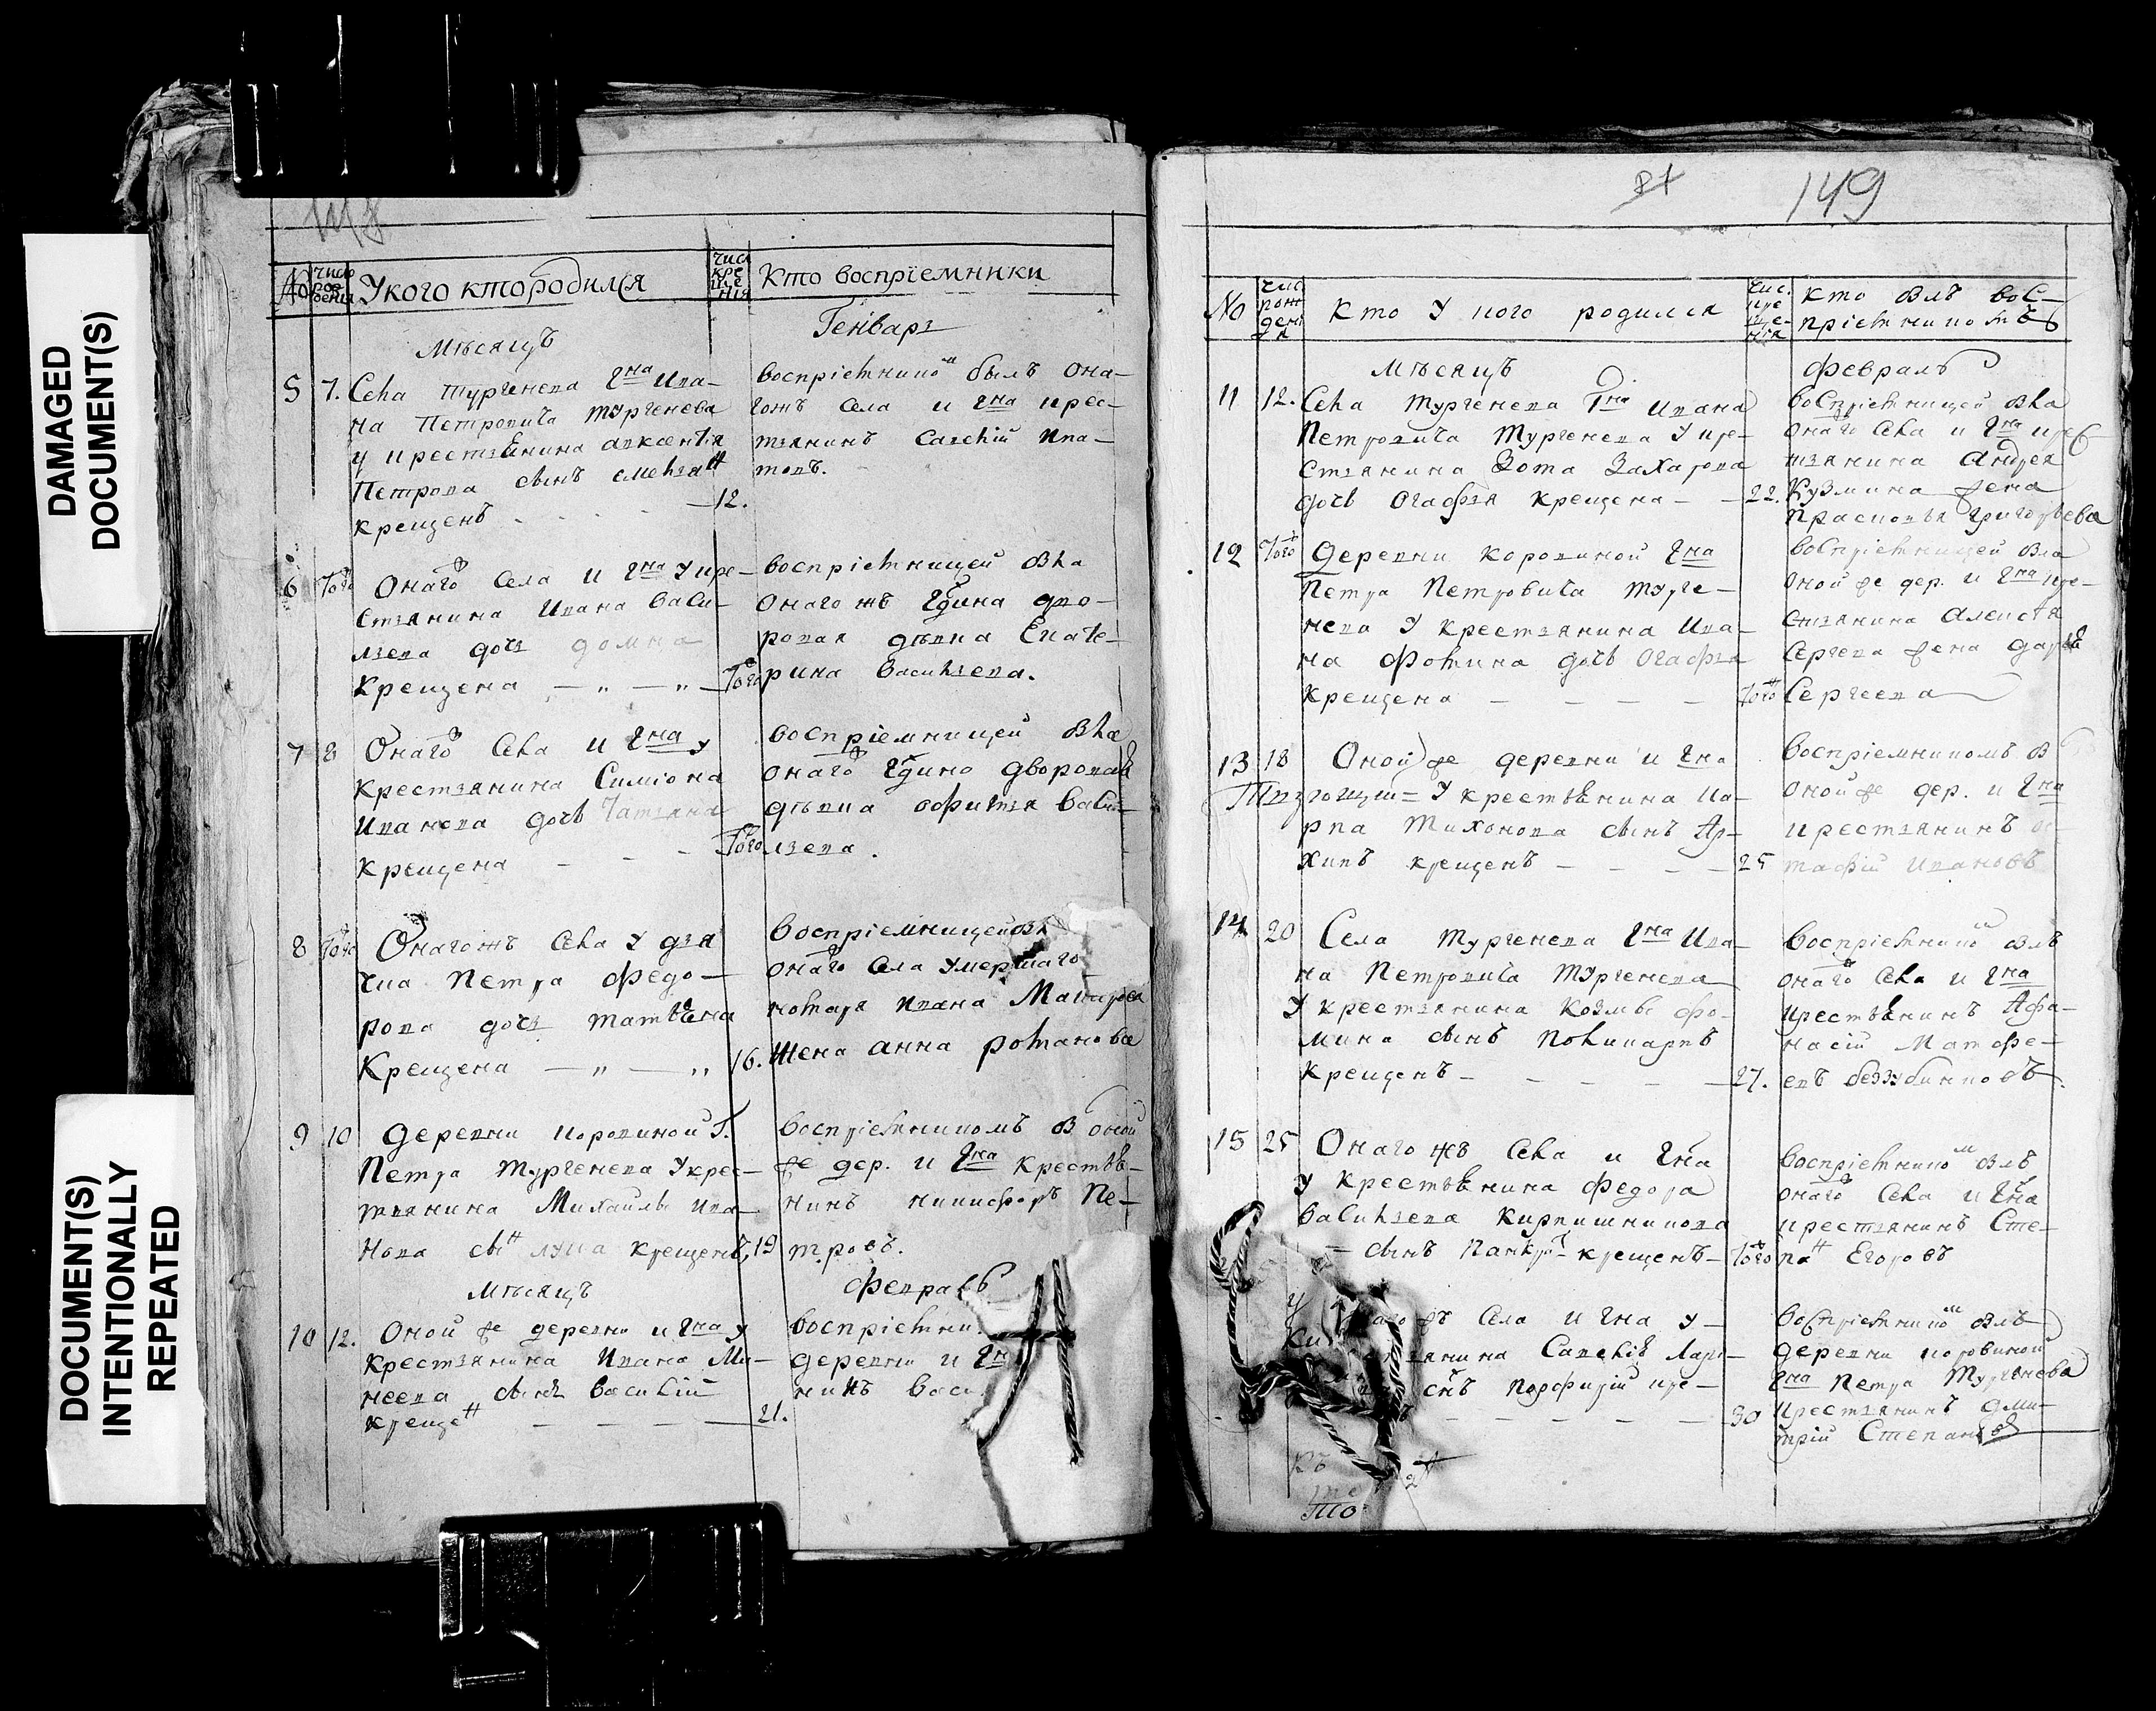 DAMAGED
DOCUMENT(S)
DOCUMENT(S)
INTENTIONALLY
REPEATED
No
Число рождения
У кого кто родился
Число крещенія
Кто воспріемники
Мѣсяцъ
Генварь
5 7. Села Тургенева Гна Ива-
на Петровича Тургенева
у крестьянина Авксентія
Петрова сынъ
крещенъ - - - 12.
воспріемникомъ былъ она-
гожъ села и Гна крес-
тьянинъ Савелій Ипа-
товъ.
6 Того Онаго села и Гна у кре-
стьянина Ивана Васи-
льева дочь Домна
крещена — „ — „ — Того
воспріемницей была
онаго жъ Гдина дво-
ровая дѣвка Екате-
рина Васильева.
7 8 Онаго села и Гна у
крестьянина Симіона
Иванова дочь Татьяна
крещена - - - Того
воспріемницей была
онаго Гдина дворовая
дѣвка Васи-
льева.
8 Того Онагожъ села у дья
чка Петра Федо-
рова дочь Татьѣна
Крещена — „ — „ 16.
воспріемницей
онаго села умершаго
Ивана
жена Анна Романова
9 10 Деревни Коровиной Г.
Петра Тургенева у крес-
тьянина Михайлы Ива-
нова сынъ Лука крещенъ, 19
воспріемникомъ б оной
же дер. и Гна крестьѣ-
нинъ Никифоръ Пе-
тровъ.
Мѣсяцъ
Февраль
10 12. Оной же деревни и Гна у
крестьянина Ивана Ми-
неева сынъ Василій
крещенъ - - - 21.
воспріемни
деревни и Гн
нинъ Васи
149
No
Чис. рожденія
Кто у кого родился
Чис. крещенія
Кто былъ вос-
пріемникомъ
Мѣсяцъ
Февраль
11 12. Села Тургенева Гна Ивана
Петровича Тургенева у кре-
стьянина Зота Захарова
дочь Огафья крещена - - 22.
воспріемницей была
онаго села и Гна крес-
тьянина Андрея
Кузмина жена
Прасковья Григорьева
12 Того Деревни Коровиной Гна
Петра Петровича Турге-
нева у крестьянина Ива-
на Фомина дочь Огафья
крещена - - - - Того
воспріемницей была
оной же дер. и Гна кре-
стьянина Алексѣя
Сергева жена Дарья
Сергеева
13 18 Оной же деревни и Гна
у крестьѣнина Ка-
рпа Тихонова сынъ Ар-
хипъ крещенъ - - - 25
воспріемникомъ б
оной же дер. и Гна
крестьянинъ
Ивановъ
14 20 Села Тургенева Гна Ива-
на Петровича Тургенева
у крестьянина Козмы Фо-
мина сынъ Поликарпъ
крещенъ - - - - 27.
воспріемникомъ былъ
онаго села и Гна
крестьѣнинъ Афа-
насій Матфе-
евъ
15 25 Онаго жъ села и Гна
у крестьѣнина Федора
Васильева Кирпишникова
сынъ Панкратъ крещенъ - Того
воспріемникомъ былъ
онаго села и Гна
крестьянинъ Сте-
панъ Егоровъ
жъ села и Гна у
янина Савелія Лари-
сынъ Порфирій кре-
- - - - 30
воспріемникомъ былъ
деревни Коровиной
Гна Петра Тургенева
крестьянинъ Дми-
трій Степановъ